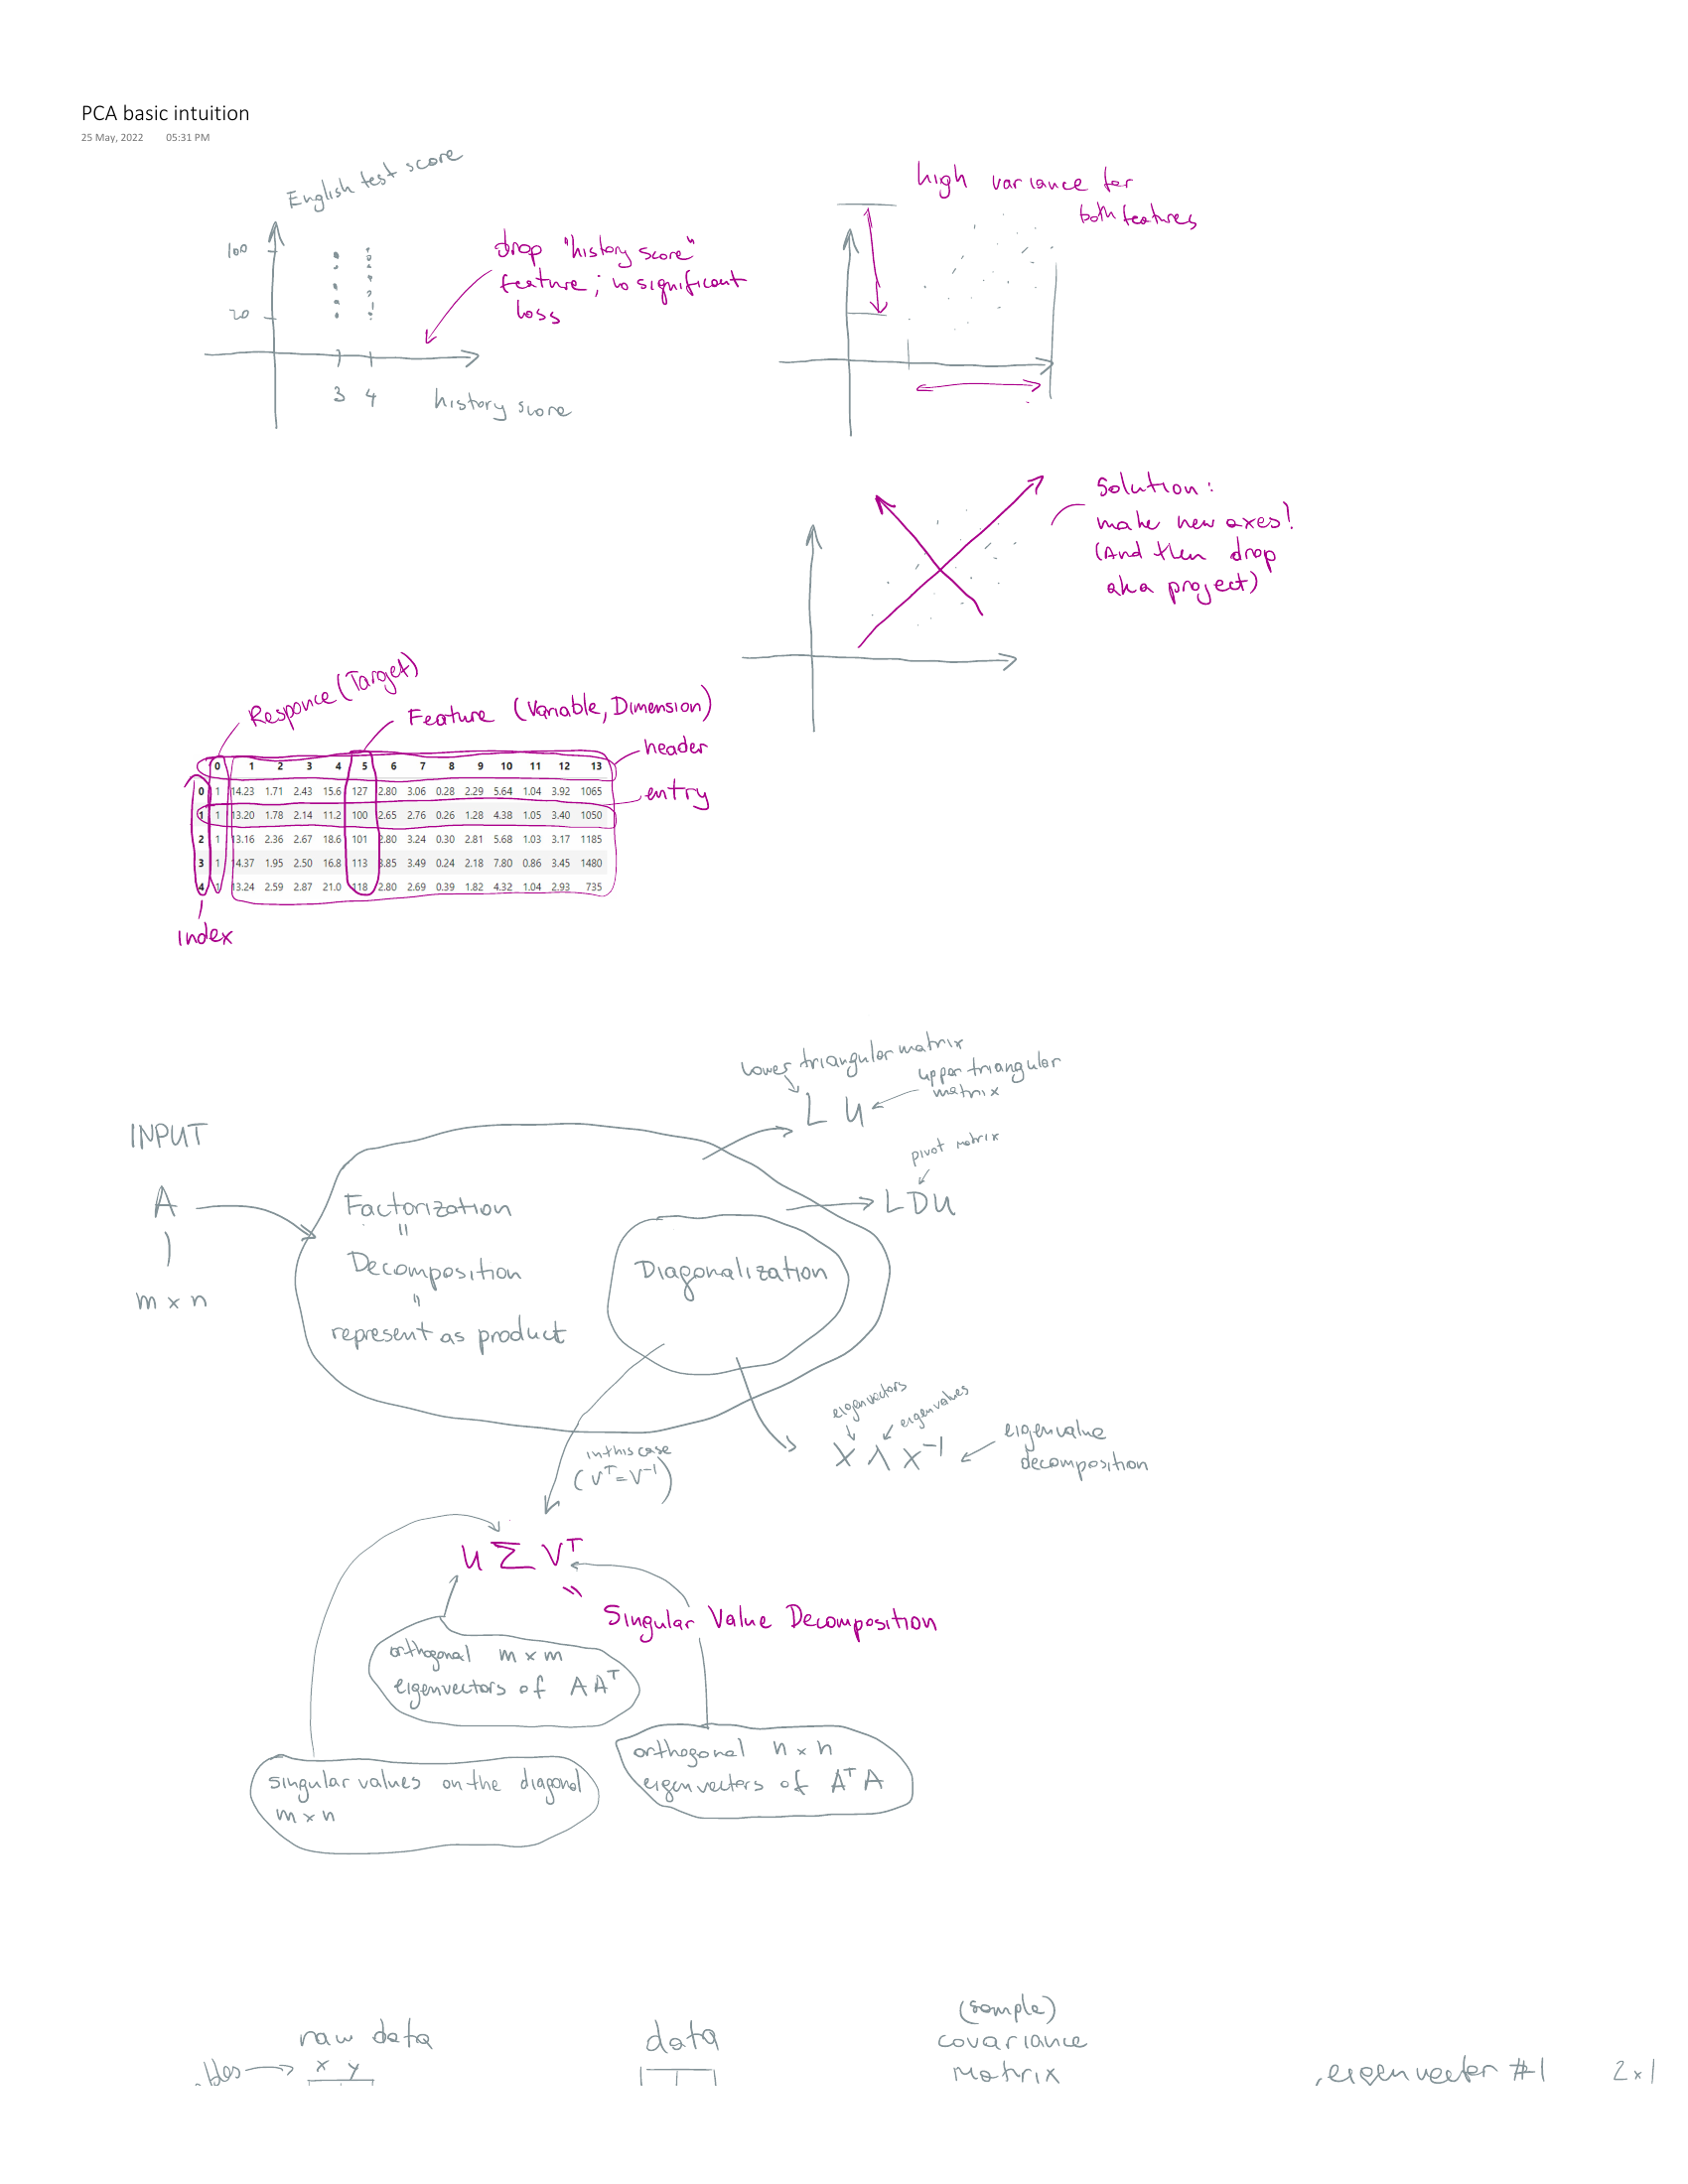 PCA basic intuition
25 May, 2022 05:31 PM
English test score
100
20
3 4
history score
drop "history score"
feature; no significant
loss
high variance for
both features
Solution:
make new axes!
(And then drop
aka project)
Responce (Target)
Feature (Variable, Dimension)
header
entry
0 1 2 3 4 5 6 7 8 9 10 11 12 13
0 1 14.23 1.71 2.43 15.6 127 2.80 3.06 0.28 2.29 5.64 1.04 3.92 1065
1 1 13.20 1.78 2.14 11.2 100 2.65 2.76 0.26 1.28 4.38 1.05 3.40 1050
2 1 13.16 2.36 2.67 18.6 101 2.80 3.24 0.30 2.81 5.68 1.03 3.17 1185
3 1 14.37 1.95 2.50 16.8 113 3.85 3.49 0.24 2.18 7.80 0.86 3.45 1480
4 1 13.24 2.59 2.87 21.0 118 2.80 2.69 0.39 1.82 4.32 1.04 2.93 735
Index
lower triangular matrix
upper triangular
matrix
L U
pivot matrix
LDU
INPUT
A
m × n
Factorization
=
Decomposition
=
represent as product
Diagonalization
eigenvectors
eigenvalues
X Λ X⁻¹
eigenvalue
decomposition
in this case
(Vᵀ = V⁻¹)
U Σ Vᵀ
=
Singular Value Decomposition
orthogonal m × m
eigenvectors of A Aᵀ
orthogonal n × n
eigenvectors of Aᵀ A
singular values on the diagonal
m × n
raw data
x y
data
(sample)
covariance
matrix
eigenvector #1
2×1